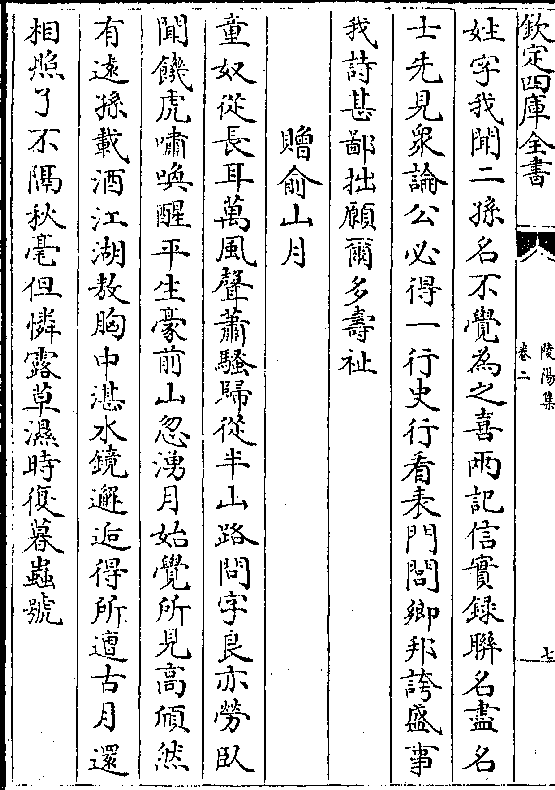 欽定四庫全書
陵陽集
卷二
七
姓字我聞二孫名不覺為之喜兩記信實録聯名盡名
士先見衆論公必得一行史行看表門閭鄉邦誇盛事
我詩甚鄙拙願爾多壽祉
贈俞山月
童奴從長耳萬風聲蕭騷歸從半山路問字良亦勞臥
聞饑虎嘯喚醒平生豪前山忽湧月始覺所見高頎然
有遠孫載酒江湖敖胸中湛水鏡邂逅得所遭古月還
相照了不隔秋毫但憐露草濕時復暮蟲號